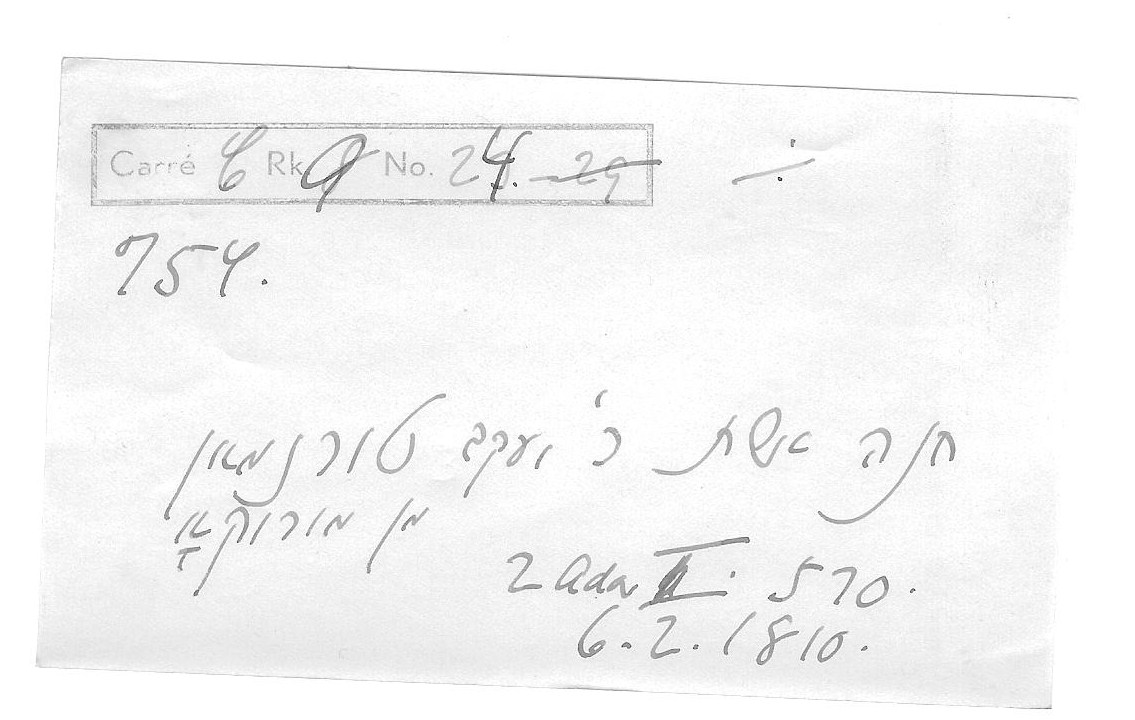 Carré C Rk 9 No. 24. 29
754.
חנה אשת ר' יעקב טורנמאן
מן מורוקא
2 Adar I. 570.
6.2.1810.